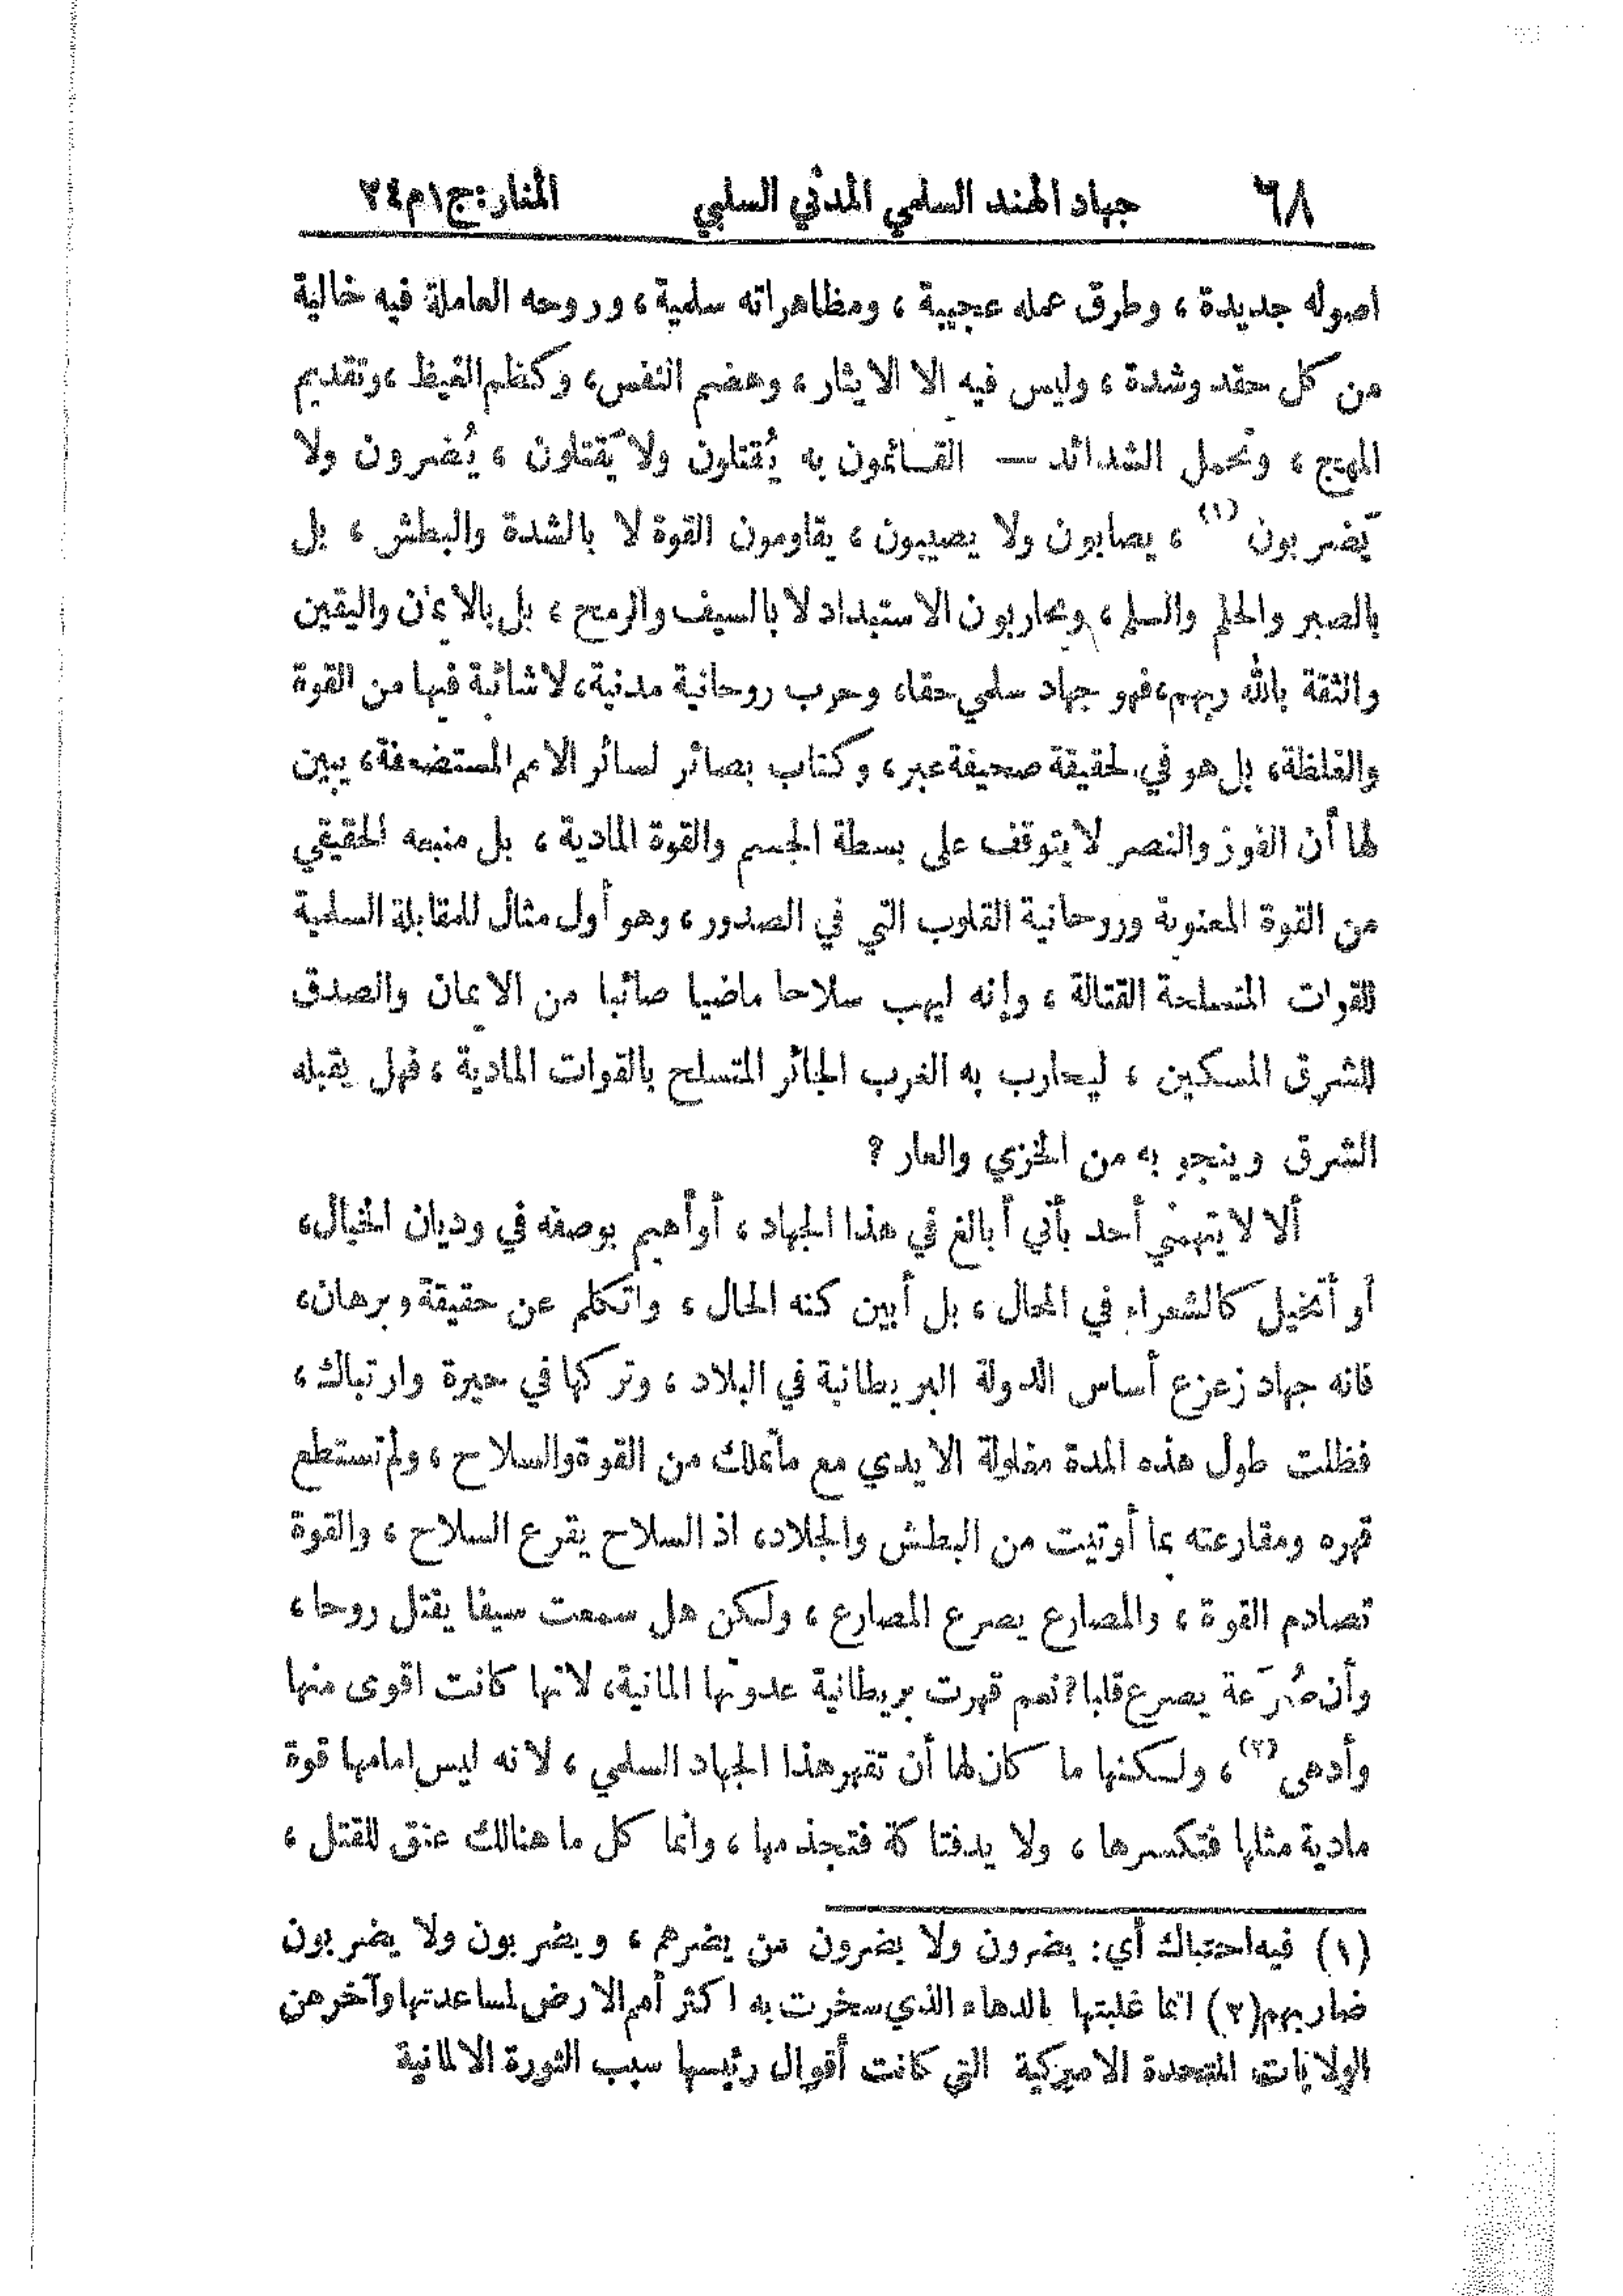 ٦٨ جهاد الهند السلمي المدني السلبي المنار: ج١م٢٤
اصوله جديدة ، وطرق عمله عجيبة ، ومظاهراته سلمية ، وروحه العاملة فيه خالية
من كل حقد وشدة ، وليس فيه الا الايثار ، وهضم النفس ، وكظم الغيظ ، وتقديم
المهج ، وتحمل الشدائد — القائمون به يُقتلون ولا يَقتلون ، يُضرون ولا
يَضربون (١) ، يصابون ولا يصيبون ، يقاومون القوة لا بالشدة والبطش ، بل
بالصبر والحلم والسلم ، ويحاربون الاستبداد لا بالسيف والرمح ، بل بالايمان واليقين
والثقة بالله ربهم ، فهو جهاد سلمي حقا ، وحرب روحانية مدنية ، لا شائبة فيها من القوة
والغلظة ، بل هو في لحقيقة صحيفة عبر ، وكتاب بصائر لسائر الامم المستضعفة ، يبين
لها أن الفوز والنصر لا يتوقف على بسطة الجسم والقوة المادية ، بل منبعه الحقيقي
من القوة المعنوية وروحانية القلوب التي في الصدور ، وهو أول مثال للمقابلة السلمية
للقوات المتسلحة القتالة ، وإنه ليهب سلاحا ماضيا صائبا من الايمان والصدق
للشرق المسكين ، ليحارب به الغرب الجائر المتسلح بالقوات المادية ، فهل يقبله
الشرق وينجو به من الخزي والعار ؟
ألا لا يتهمني أحد بأني أبالغ في هذا الجهاد ، أو أهيم بوصفه في وديان الخيال ،
أو أتخيل كالشعراء في المحال ، بل أبين كنه الحال ، واتكلم عن حقيقة وبرهان ،
فانه جهاد زعزع أساس الدولة البريطانية في البلاد ، وتركها في حيرة وارتباك ،
فظلت طول هذه المدة مغلولة الايدي مع ماتملك من القوة والسلاح ، ولم تستطع
قهره ومقارعته بما أوتيت من البطش والجلاد ، اذ السلاح يقرع السلاح ، والقوة
تصادم القوة ، والمصارع يصرع المصارع ، ولكن هل سمعت سيفا يقتل روحا ،
وأن صُرَعة يصرع قلبا ؟ نعم قهرت بريطانية عدوتها المانية ، لانها كانت اقوى منها
وأدهى (٢) ، ولكنها ما كان لها أن تقهر هذا الجهاد السلمي ، لانه ليس امامها قوة
مادية مثلها فتكسرها ، ولا يد فتاكة فتجذمها ، وانما كل ما هنالك عنق للقتل ،
(١) فيه احتباك أي : يضرون ولا يضرون من يضرهم ، ويضربون ولا يضربون
ضاربهم (٢) انما غلبتها بالدهاء الذي سخرت به اكثر أمم الارض لمساعدتها وآخرهن
الولايات المتحدة الاميركية التي كانت أقوال رئيسها سبب الثورة الالمانية